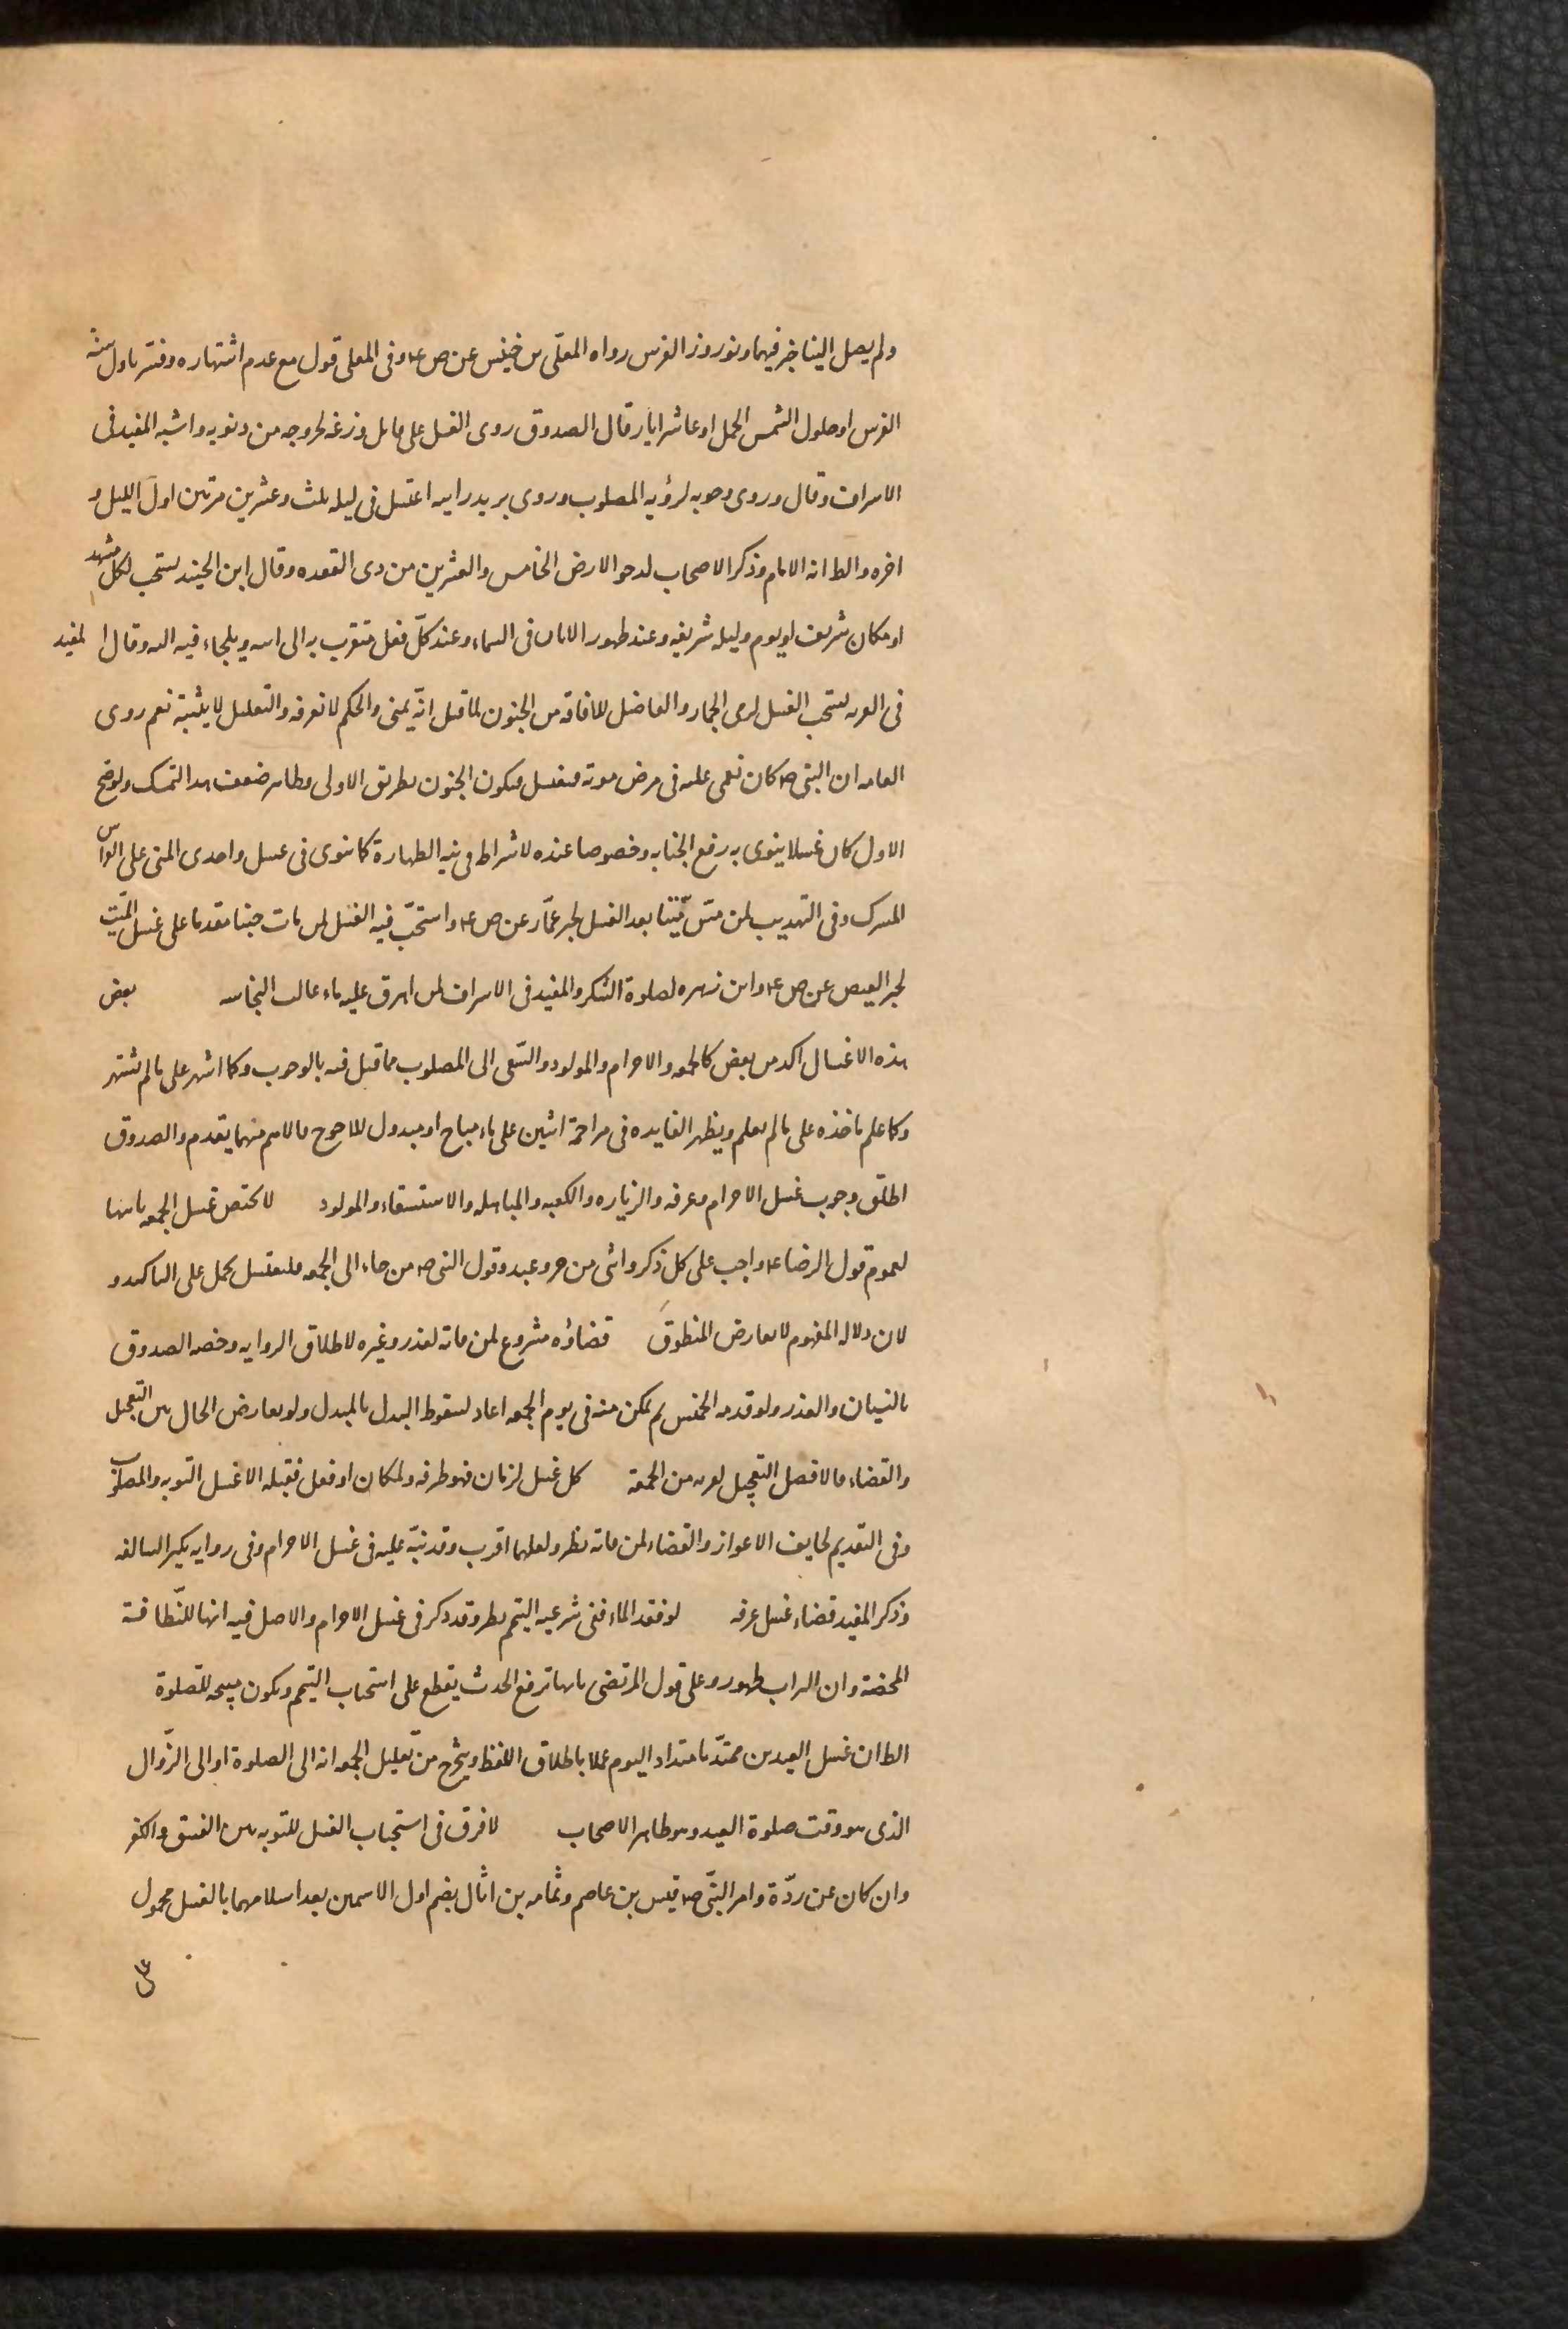 ولم يصل الينا خبر فيهما ونوروز الفرس رواه المعلّى بن خنيس عن ص ع‍ وفى المعلى قول مع عدم اشتهاره وفسّر باول سنة
الفرس او حلول الشمس الحمل او عاشر ايار قال الصدوق روى الغسل على قاتل وزغه لخروجه من ذنوبه واثبته المفيد فى
الاشراف وقال وروى وجوبه لرؤيه المصلوب وروى بريد رايته اغتسل فى ليله ثلث وعشرين مرتين اول الليل و
اخره والظ انه الامام وذكر الاصحاب لدحو الارض الخامس والعشرين من ذى القعده وقال ابن الجنيد يستحب لكل مشهد
او مكان شريف او يوم وليله شريفه وعند ظهور الايات فى السماء وعند كلّ فعل متقرب به الى الله ويلجاء فيه اليه وقال المفيد
فى العزيه يستحب الغسل لرمى الجمار والفاضل للافاقه من الجنون لما قيل انّه يمنى والحكم لا نعرفه والتعليل لا يثبته نعم روى
العامه ان النبى ص كان يغمى عليه فى مرض موته فيغتسل فيكون الجنون بطريق الاولى وظاهر ضعف هذا التمسك ولو صح
الاول كان غسلا ينوى به رفع الجنابه وخصوصا عنده لاشراطه فى نيه الطهارة كما ينوى فى غسل واجدى المنى على الثواب
المشترك وفى التهذيب لمن مسّ ميّتا بعد الغسل لخبر عمّار عن ص ع‍ واستحبّ فيه الغسل لمن مات جنبا مقدما على غسل الميّت
لخبر العيص عن ص ع‍ وابن زهره لصلوة الشكر والمفيد فى الاشراف لمن اهرق عليه ماء غالب النجاسه بعض
هذه الاغسال اكد من بعض كالجمعه والاحرام والمولود والسّعى الى المصلوب مما قيل فيه بالوجوب وكما اشتهر على ما لم يشتهر
وكما علم ماخذه على ما لم يعلم ويظهر الفايده فى مزاحمة اثنين على ماء مباح او مبذول للاحوج فالاهم منهما يقدم والصدوق
اطلق وجوب غسل الاحرام وعرفه والزياره والكعبه والمباهله والاستسقاء والمولود لا يختص غسل الجمعه باتيها
لعموم قول الرضا ع‍ واجب على كل ذكر وانثى من حر وعبد وقول النبى ص من جاء الى الجمعه فليغتسل يحمل على التاكيد و
لان دلاله المفهوم لا يعارض المنطوق قضاؤه مشروع لمن فاته لعذر وغيره لاطلاق الروايه وخصه الصدوق
بالنسيان والعذر ولو قدمه الخميس ثم تمكن منه فى يوم الجمعه اعاد لسقوط البدل بالمبدل ولو تعارض الحال بين التعجيل
والقضاء فالافضل التعجيل لقربه من الجمعة كل غسل لزمان فهو ظرفه ولمكان او فعل فقبله الا غسل التوبه والمصلوب
وفى التقديم لخايف الاعواز والقضاء لمن فاته نظر ولعلهما اقرب وقد نبّه عليه فى غسل الاحرام وفى روايه بكير السالفه
وذكر المفيد قضاء غسل عرفه لو فقد الماء ففى شرعيه التيمم نظر وقد ذكر فى غسل الاحرام والاصل فيه انها للنّظافة
المحضة وان التراب طهور وعلى قول المرتضى بانها ترفع الحدث يقطع على استحباب التيمم ويكون مبيحه للصلوة
الظ ان غسل العيدين ممتدّ بامتداد اليوم عملا باطلاق اللفظ ويتخرج من تعليل الجمعه انه الى الصلوة او الى الزّوال
الذى هو وقت صلوة العيد وهو ظاهر الاصحاب لا فرق فى استحباب الغسل للتوبه بين الفسق والكفر
وان كان عن ردّة وامر النبّى ص قيس بن عاصم وثمامه بن اثال بضم اول الاسمين بعد اسلامهما بالغسل محمول
على